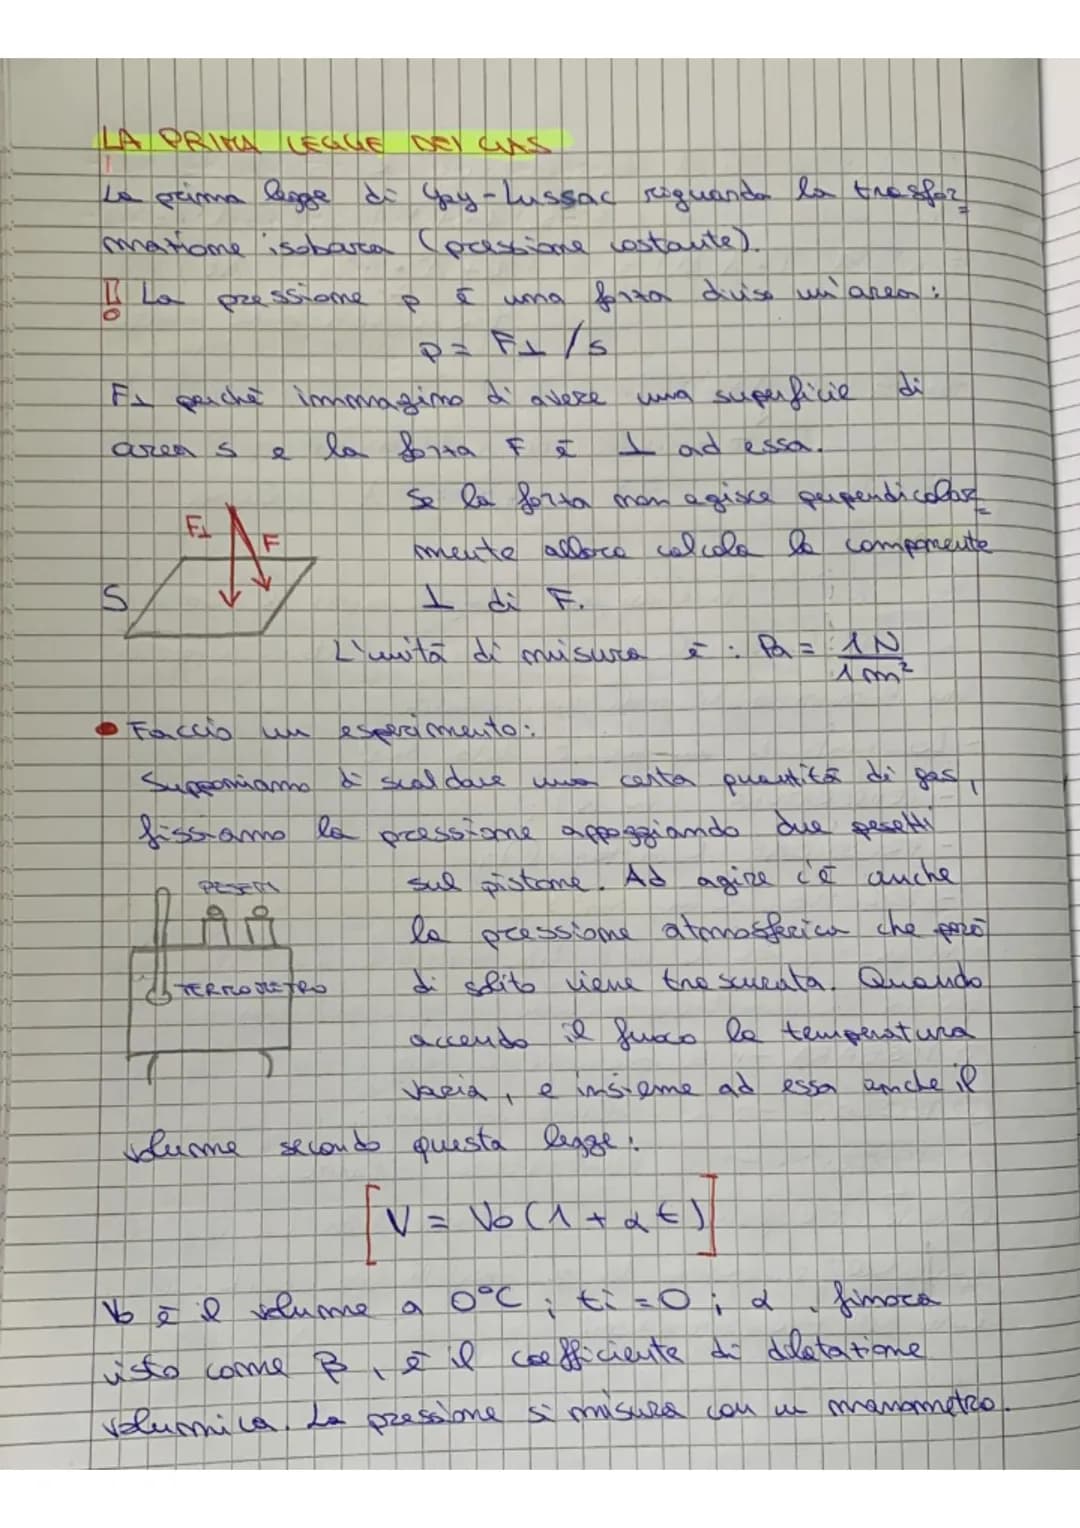 LA PRIMA LEGGE DEI GAS
La prima legge di Gay-Lussac riguarda la trasfor=
mazione isobara (pressione costante).
! La pressione p è una forza diviso un'area:
p = F⊥ / S
F⊥ perché immagino di avere una superficie di
area S e la forza F è ⊥ ad essa.
Se la forza non agisce perpendicolar=
F⊥ F
mente allora calcola la componente
S
⊥ di F.
L'unità di misura è : Pa = 1N / 1m²
• Faccio un esperimento:
Supponiamo di scaldare una certa quantità di gas,
fissiamo la pressione appoggiando due pesetti
PESETTI
sul pistone. Ad agire c'è anche
la pressione atmosferica che però
TERMOMETRO
di solito viene trascurata. Quando
accendo il fuoco la temperatura
varia, e insieme ad essa anche il
volume secondo questa legge:
[V = V₀ (1 + α t)]
V₀ è il volume a 0°C ; ti = 0 ; α, finora
visto come β, è il coefficiente di dilatazione
volumica. La pressione si misura con un manometro.